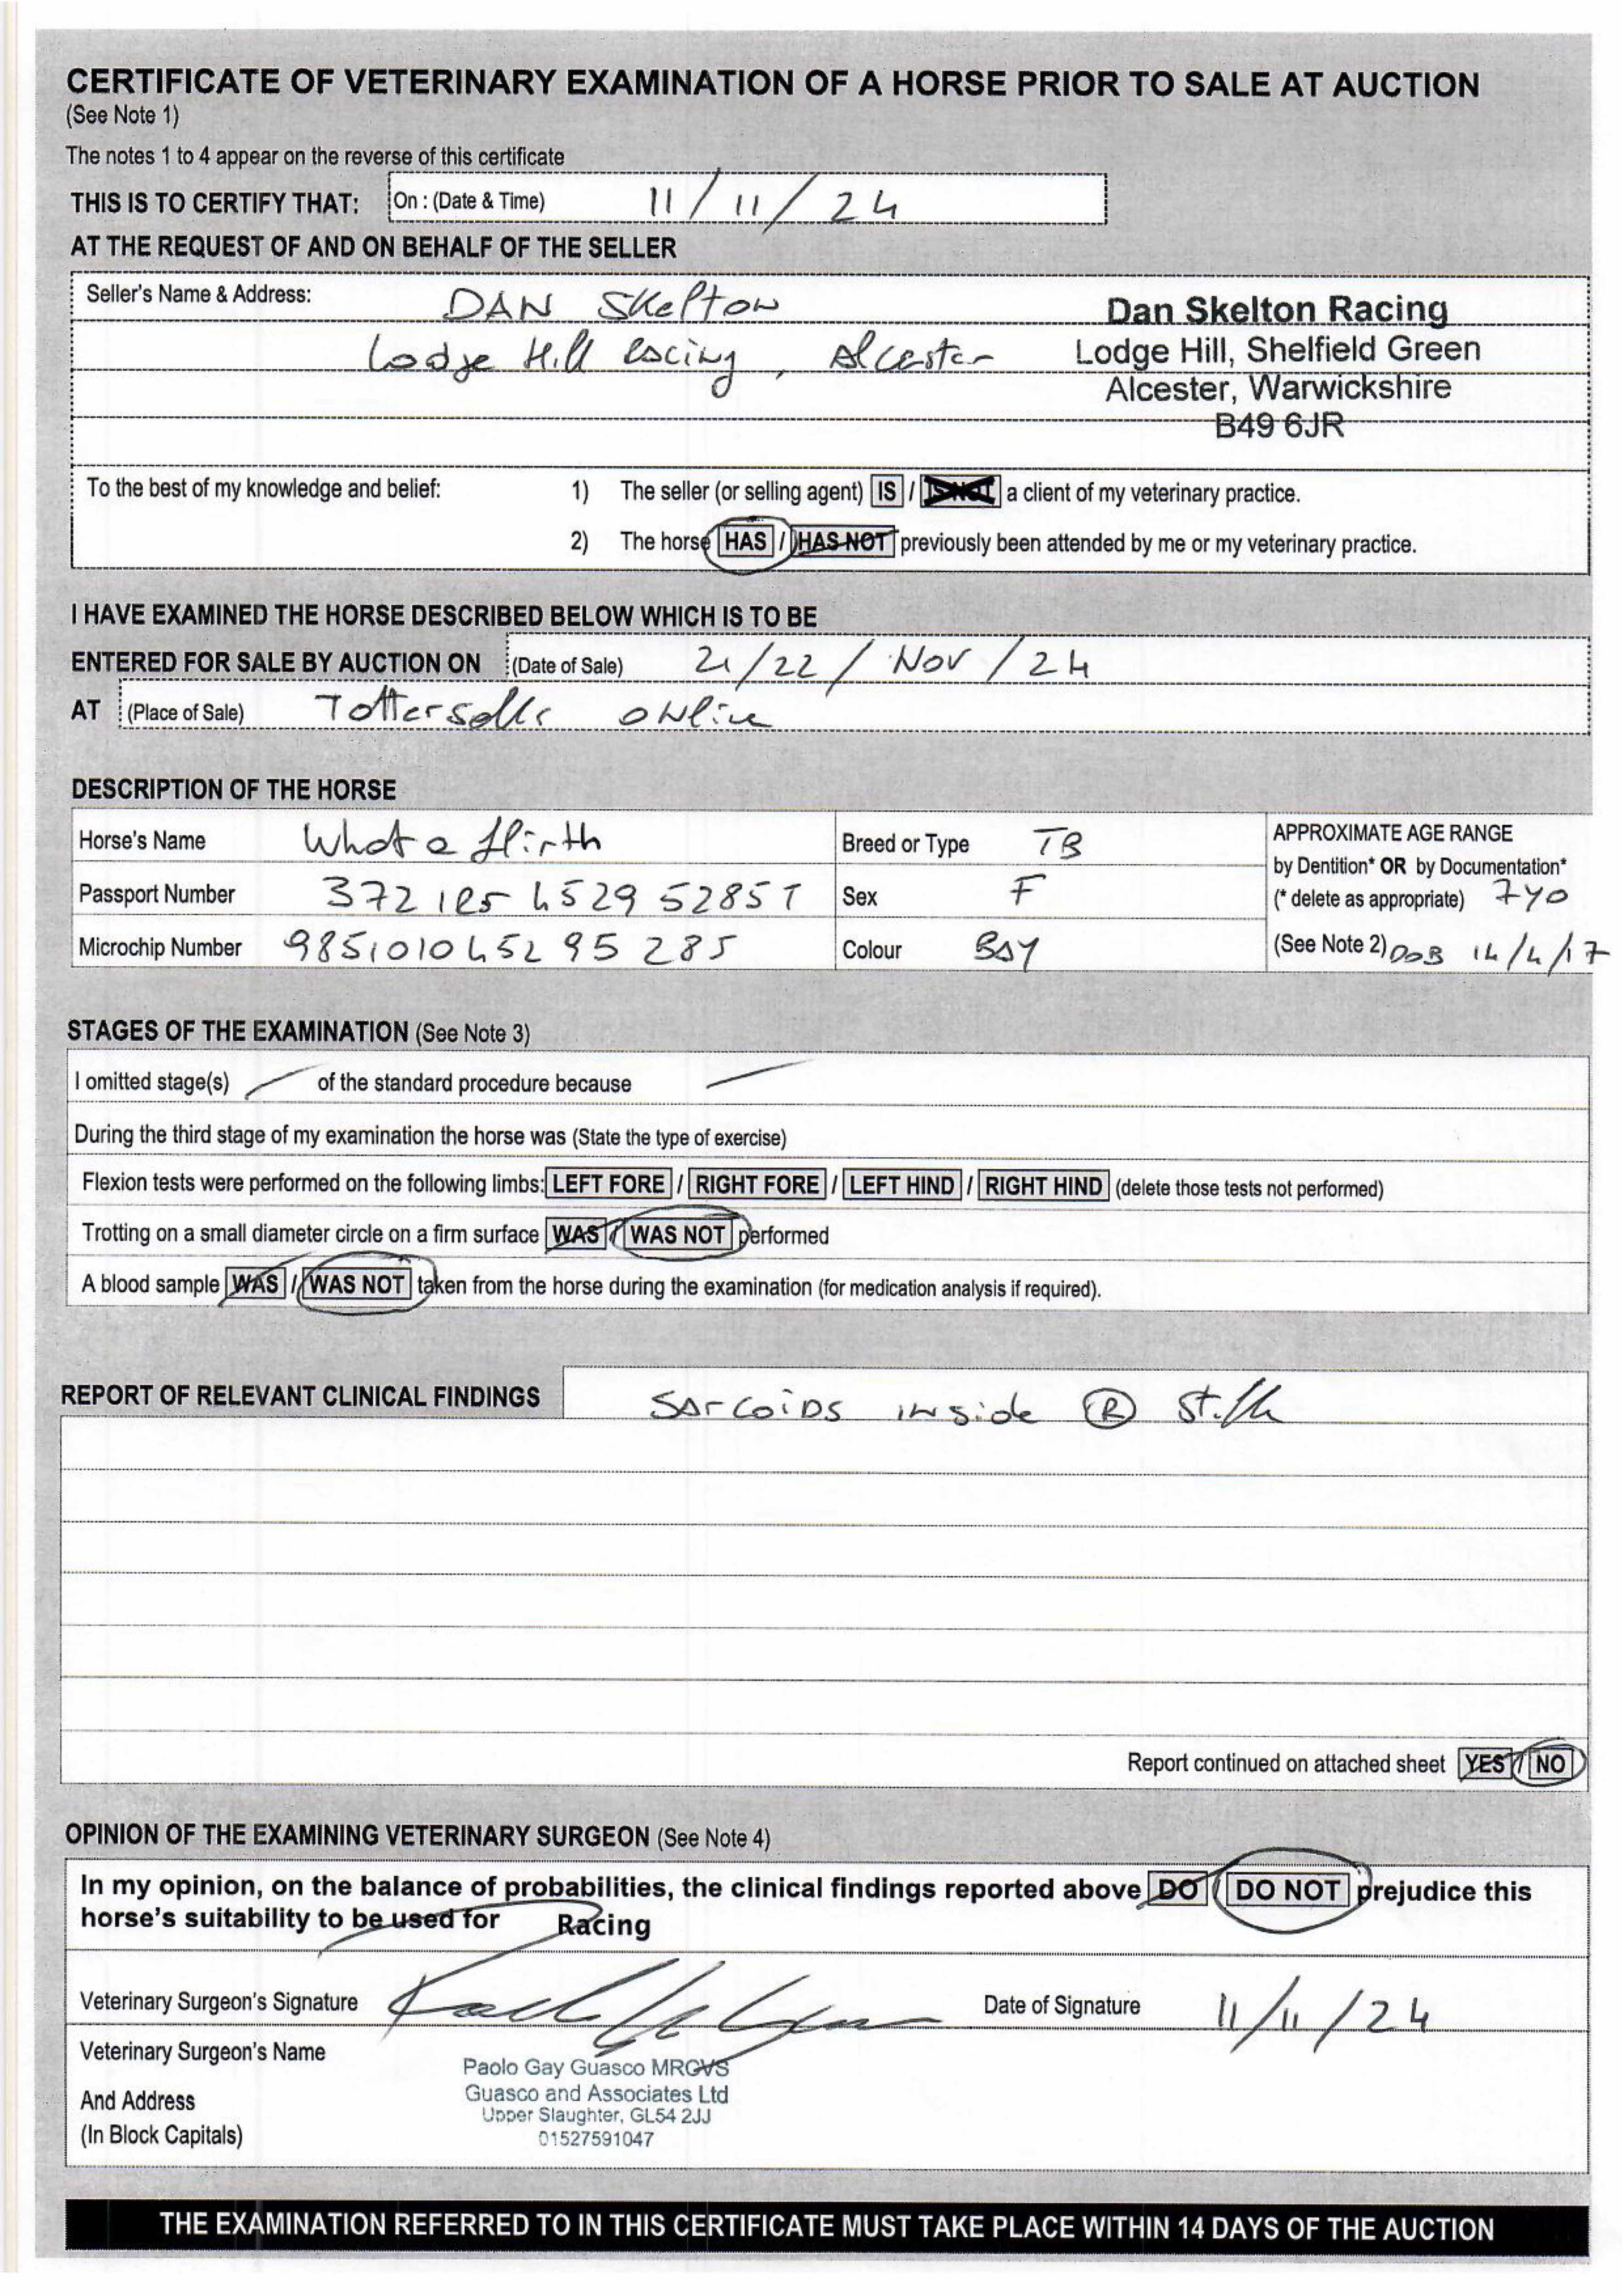 CERTIFICATE OF VETERINARY EXAMINATION OF A HORSE PRIOR TO SALE AT AUCTION
(See Note 1)
The notes 1 to 4 appear on the reverse of this certificate
THIS IS TO CERTIFY THAT: On : (Date & Time) 11/11/24
AT THE REQUEST OF AND ON BEHALF OF THE SELLER
Seller's Name & Address: DAN Skelton Dan Skelton Racing
Lodge Hill Racing, Alcester Lodge Hill, Shelfield Green
Alcester, Warwickshire
B49 6JR
To the best of my knowledge and belief: 1) The seller (or selling agent) IS / IS NOT a client of my veterinary practice.
2) The horse HAS / HAS NOT previously been attended by me or my veterinary practice.
I HAVE EXAMINED THE HORSE DESCRIBED BELOW WHICH IS TO BE
ENTERED FOR SALE BY AUCTION ON (Date of Sale) 21/22/Nov/24
AT (Place of Sale) Tattersalls online
DESCRIPTION OF THE HORSE
Horse's Name What a flirth Breed or Type TB APPROXIMATE AGE RANGE
by Dentition* OR by Documentation*
Passport Number Sex F (* delete as appropriate) 7YO
Microchip Number 985101045295285 Colour BAY (See Note 2) DOB 14/4/17
STAGES OF THE EXAMINATION (See Note 3)
I omitted stage(s) of the standard procedure because
During the third stage of my examination the horse was (State the type of exercise)
Flexion tests were performed on the following limbs: LEFT FORE / RIGHT FORE / LEFT HIND / RIGHT HIND (delete those tests not performed)
Trotting on a small diameter circle on a firm surface WAS / WAS NOT performed
A blood sample WAS / WAS NOT taken from the horse during the examination (for medication analysis if required).
REPORT OF RELEVANT CLINICAL FINDINGS Sarcoids inside R stifle
Report continued on attached sheet YES / NO
OPINION OF THE EXAMINING VETERINARY SURGEON (See Note 4)
In my opinion, on the balance of probabilities, the clinical findings reported above DO / DO NOT prejudice this
horse's suitability to be used for Racing
Veterinary Surgeon's Signature Date of Signature 11/11/24
Veterinary Surgeon's Name
Paolo Gay Guasco MRCVS
And Address Guasco and Associates Ltd
Upper Slaughter, GL54 2JJ
(In Block Capitals) 01527591047
THE EXAMINATION REFERRED TO IN THIS CERTIFICATE MUST TAKE PLACE WITHIN 14 DAYS OF THE AUCTION